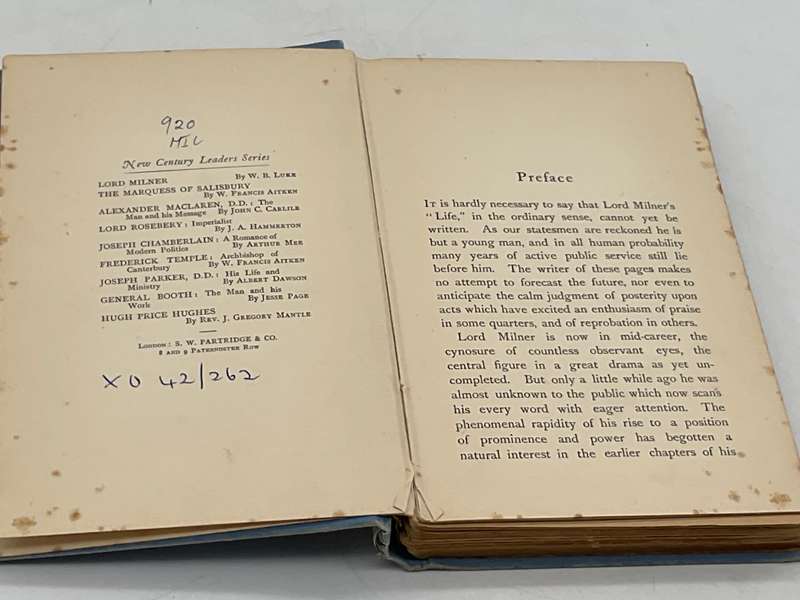 920
MIL
New Century Leaders Series
LORD MILNER By W. B. Luke
THE MARQUESS OF SALISBURY
By W. Francis Aitken
ALEXANDER MACLAREN, D.D.: The
Man and his Message By John C. Carlile
LORD ROSEBERY: Imperialist
By J. A. Hammerton
JOSEPH CHAMBERLAIN: A Romance of
Modern Politics By Arthur Mee
FREDERICK TEMPLE: Archbishop of
Canterbury By W. Francis Aitken
JOSEPH PARKER, D.D.: His Life and
Ministry By Albert Dawson
GENERAL BOOTH: The Man and his
Work By Jesse Page
HUGH PRICE HUGHES
By Rev. J. Gregory Mantle
London: S. W. PARTRIDGE & CO.
8 and 9 Paternoster Row
XO 42/262
Preface
It is hardly necessary to say that Lord Milner's
"Life," in the ordinary sense, cannot yet be
written. As our statesmen are reckoned he is
but a young man, and in all human probability
many years of active public service still lie
before him. The writer of these pages makes
no attempt to forecast the future, nor even to
anticipate the calm judgment of posterity upon
acts which have excited an enthusiasm of praise
in some quarters, and of reprobation in others.
Lord Milner is now in mid-career, the
cynosure of countless observant eyes, the
central figure in a great drama as yet un-
completed. But only a little while ago he was
almost unknown to the public which now scans
his every word with eager attention. The
phenomenal rapidity of his rise to a position
of prominence and power has begotten a
natural interest in the earlier chapters of his